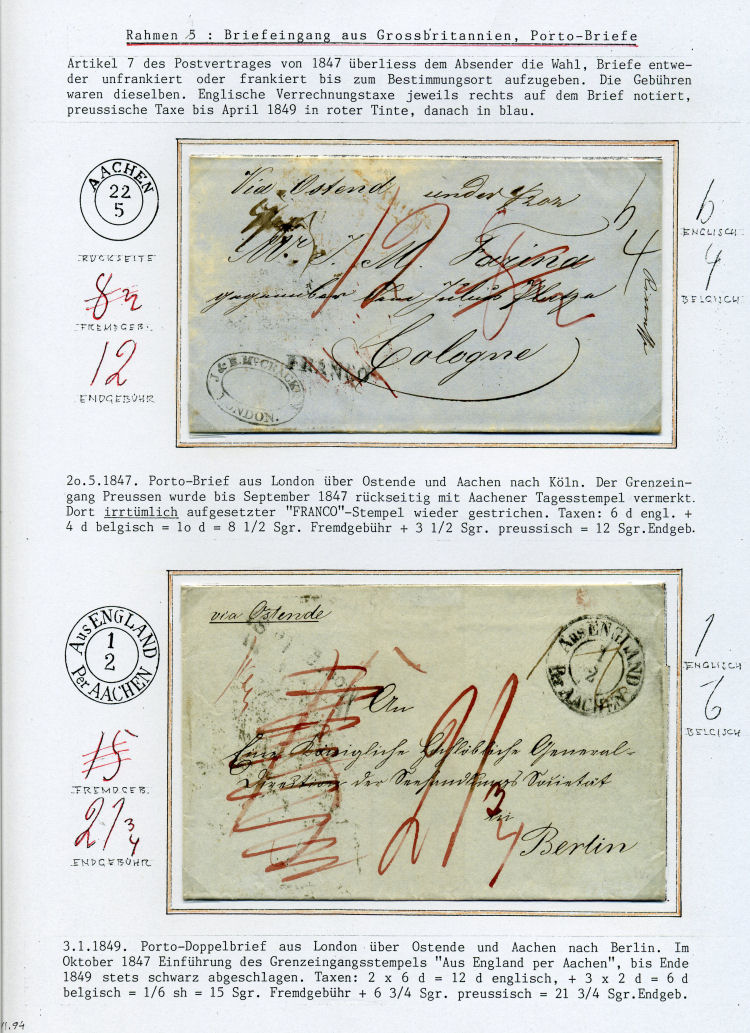 Rahmen 5 : Briefeingang aus Grossbritannien, Porto-Briefe
Artikel 7 des Postvertrages von 1847 überliess dem Absender die Wahl, Briefe entwe-
der unfrankiert oder frankiert bis zum Bestimmungsort aufzugeben. Die Gebühren
waren dieselben. Englische Verrechnungstaxe jeweils rechts auf dem Brief notiert,
preussische Taxe bis April 1849 in roter Tinte, danach in blau.
AACHEN
22
5
RÜCKSEITE
FREMDGEB.
12
ENDGEBÜHR
Via Ostend
Mr. J. M. Farina
gegenüber dem Julius Platz
Cologne
12
FRANCO
J & R. McCRACKEN
LONDON.
6
ENGLISCH
4
BELGISCH
2o.5.1847. Porto-Brief aus London über Ostende und Aachen nach Köln. Der Grenzein-
gang Preussen wurde bis September 1847 rückseitig mit Aachener Tagesstempel vermerkt.
Dort irrtümlich aufgesetzter "FRANCO"-Stempel wieder gestrichen. Taxen: 6 d engl. +
4 d belgisch = 1o d = 8 1/2 Sgr. Fremdgebühr + 3 1/2 Sgr. preussisch = 12 Sgr.Endgeb.
Aus ENGLAND
1
2
Per AACHEN
15
FREMDGEB.
21 3/4
ENDGEBÜHR
via Ostende
Aus ENGLAND
1
2
Per AACHEN
An
Eine Königliche Hochlöbliche General-
Direction der Seehandlungs Societät
in
Berlin
21 3/4
1
ENGLISCH
6
BELGISCH
3.1.1849. Porto-Doppelbrief aus London über Ostende und Aachen nach Berlin. Im
Oktober 1847 Einführung des Grenzeingangsstempels "Aus England per Aachen", bis Ende
1849 stets schwarz abgeschlagen. Taxen: 2 x 6 d = 12 d englisch, + 3 x 2 d = 6 d
belgisch = 1/6 sh = 15 Sgr. Fremdgebühr + 6 3/4 Sgr. preussisch = 21 3/4 Sgr.Endgeb.
11.94